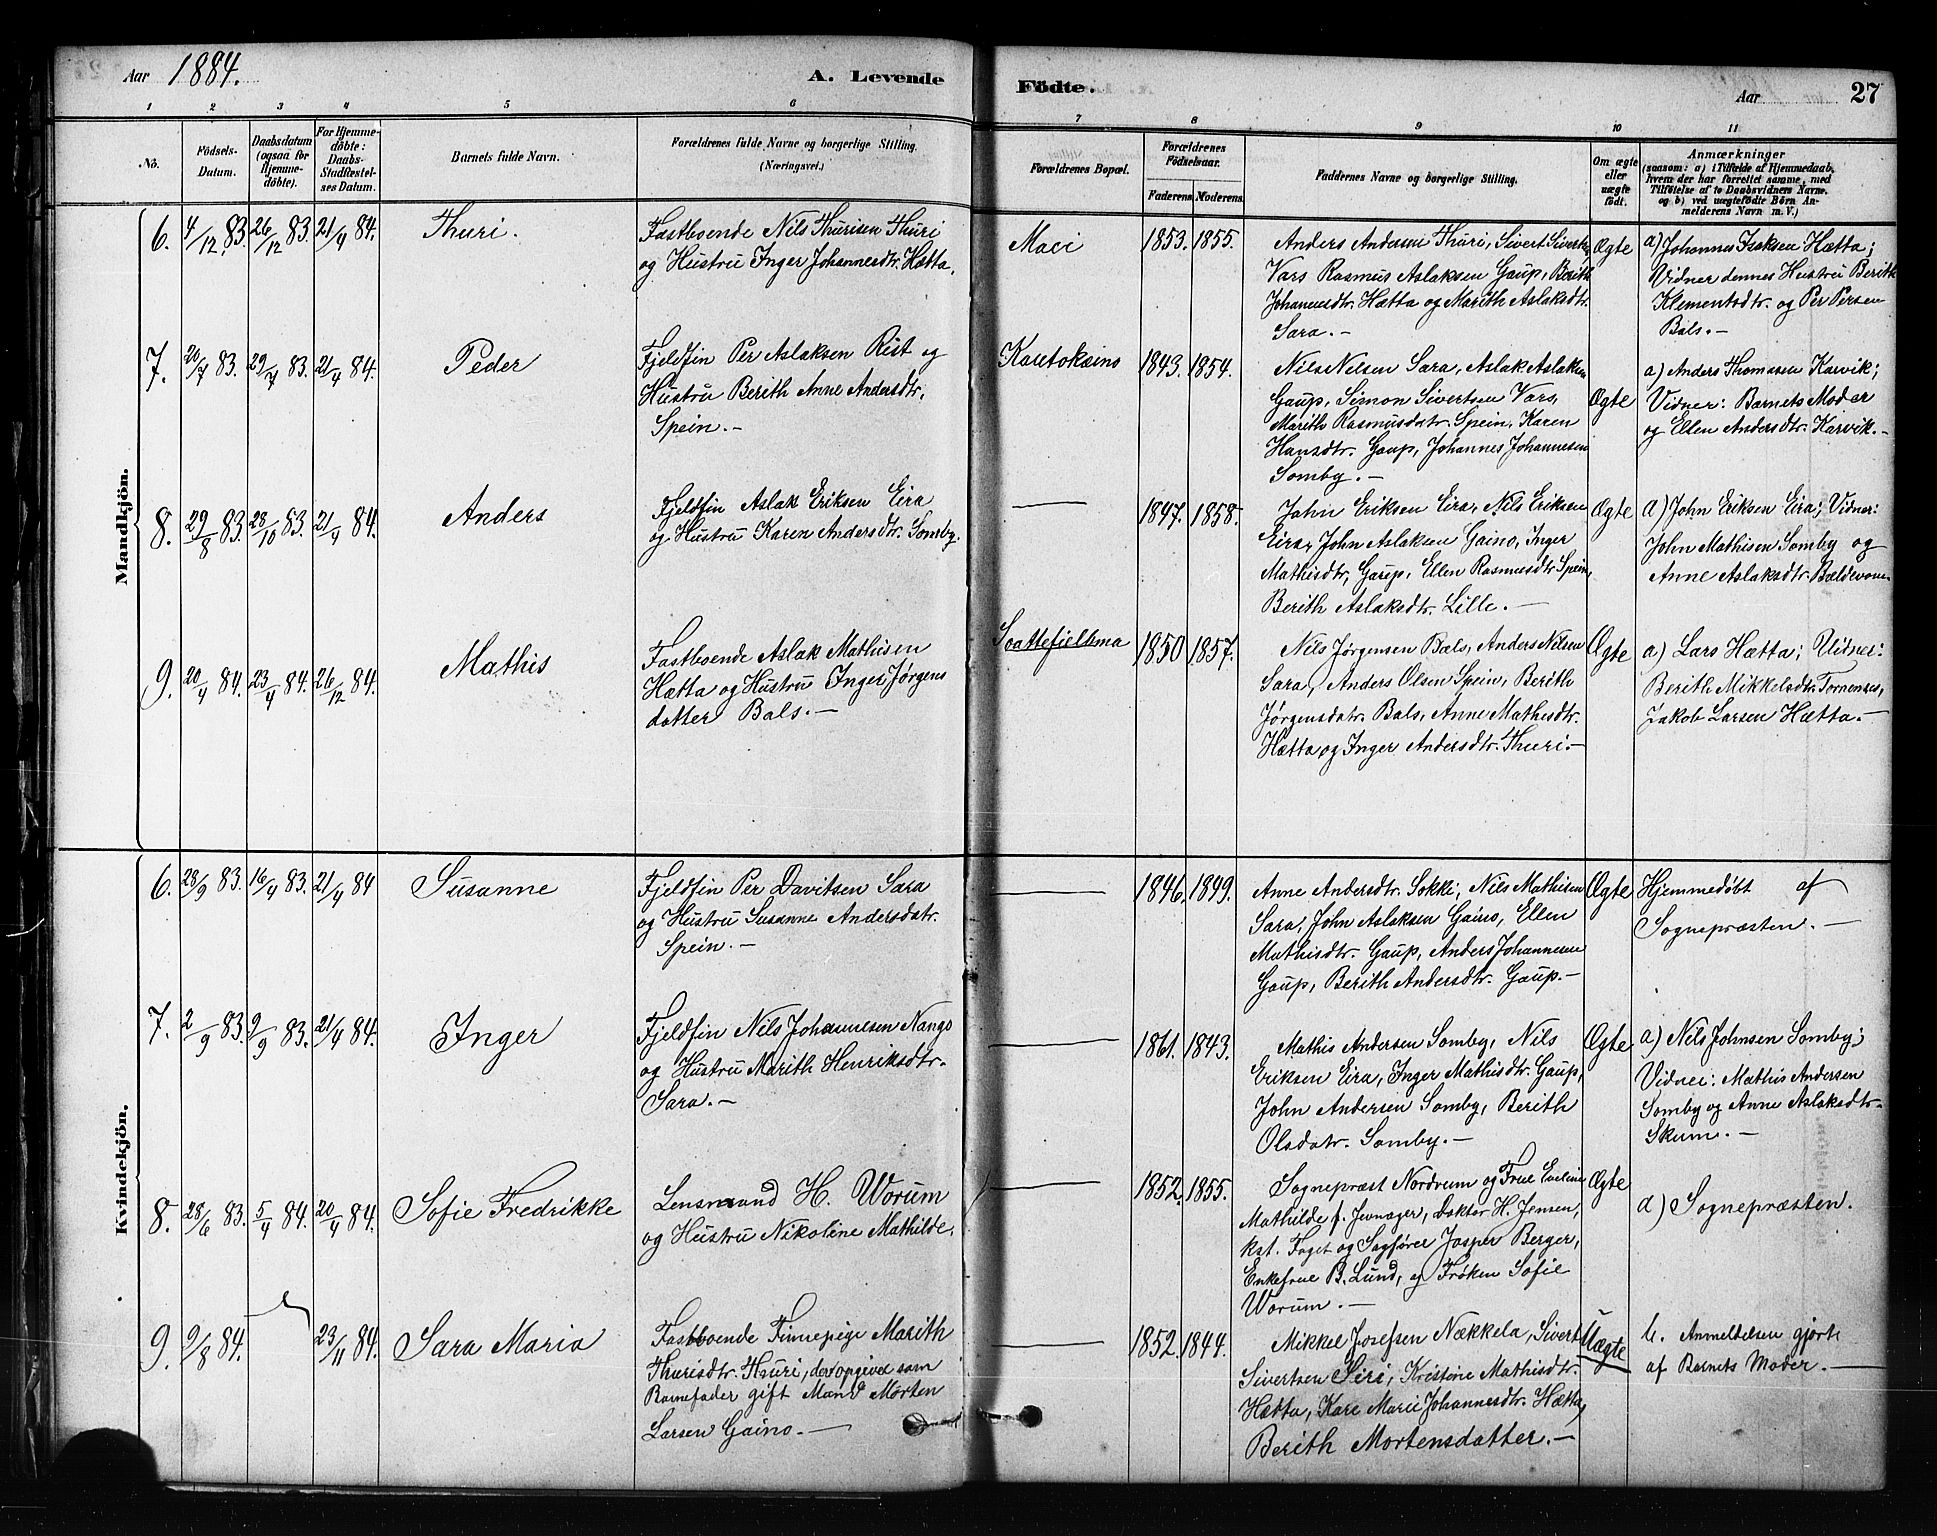 Aar 1884. A. Levende Födte. Aar 27
1 2 3 4 5 6 7 8 9 10 11
No. Födsels-Datum. Daabsdatum (ogsaa for Hjemmedöbte). For Hjemmedöbte: Daabs-Stadfæstelses Datum. Barnets fulde Navn. Forældrenes fulde Navne og borgerlige Stilling. (Næringsvei.) Forældrenes Bopæl. Forældrenes Födselsaar. Faderens. Moderens. Faddernes Navne og borgerlige Stilling. Om ægte eller uægte födt. Anmærkninger (saasom: a) i Tilfælde af Hjemmedaab, hvem der har forrettet samme, med Tilföielse af to Daabsvidners Navne. og b) ved uægtefödte Börn Anmelderens Navn m. V.)
Mandkjön.
6. 4/12 83. 26/12 83. 21/4 84. Thuri. Fastboende Nils Thurisen Thuri
og Hustru Inger Johannesdtr. Hætta.
Maci 1853. 1855.
Anders Andersen Thuri, Sivert Siverts.
Vars Rasmus Aslaksen Gaup, Berith
Johannesdtr. Hætta og Marith Aslaksdtr.
Sara.-
Ægte
a) Johannes Isaksen Hætta;
Vidner dennes Hustru Berith
Klementsdtr. og Per Persen
Bals.-
7. 20/7 83. 29/7 83. 21/4 84. Peder
Fjeldfin Per Aslaksen Rist og
Hustru Berith Anne Andersdtr.
Spein.-
Kautokeino 1843. 1854.
Nils Nilsen Sara, Aslak Aslaksen
Gaup, Simon Sivertsen Vars,
Marith Rasmusdatr. Spein, Karen
Hansdtr. Gaup, Johannes Johannesen
Somby.-
Ægte
a) Anders Thomasen Karvik;
Vidner: Barnets Moder
og Ellen Andersdtr. Karvik.-
8. 29/8 83. 28/10 83. 21/4 84. Anders
Fjeldfin Aslak Eriksen Eira
og Hustru Karen Andersdtr. Somby.
— 1847. 1858.
John Eriksen Eira, Nils Eriksen
Eira, John Aslaksen Gaino, Inger
Mathisdtr, Gaup, Ellen Rasmusdtr Spein,
Berith Aslaksdtr. Lille.-
Ægte
a) John Eriksen Eira; Vidner:
John Mathisen Somby og
Anne Aslaksdtr.
9. 20/4 84. 23/4 84. 26/12 84. Mathis
Fastboende Aslak Mathisen
Hætta og Hustru Inger Jørgens
datter Bals.-
1850 1857.
Nils Jørgensen Bals, Anders Nilsen
Sara, Anders Olsen Spein, Berith
Jørgensdatr. Bals, Anne Mathisdtr.
Hætta og Inger Andersdtr. Thuri.-
Ægte
a) Lars Hætta; Vidner:
Berith Mikkelsdtr. Tornenses,
Jakob Larsen Hætta.-
Kvindekjön.
6. 28/9 83. 16/4 83. 21/4 84 Susanne
Fjeldfin Per Davitsen Sara
og Hustru Susanne Andersdatr.
Spein.-
— 1846. 1849.
Anne Andersdtr. Sokki, Nils Mathisen
Sara, John Aslaksen Gaino, Ellen
Mathisdtr. Gaup, Anders Johannesen
Gaup, Berith Andersdtr. Gaup.-
Ægte
Hjemmedøbt af
Sognepræsten.-
7. 2/9 83. 9/9 83. 21/4 84. Inger
Fjeldfin Nils Johannesen Nango
og Hustru Marith Henriksdtr.
Sara.-
— 1861. 1843.
Mathis Andersen Somby, Nils
Eriksen Eira, Inger Mathisdtr. Gaup,
John Andersen Somby, Berith
Olsdatr. Somby.-
Ægte
a) Nils Johnsen Somby;
Vidner: Mathis Andersen
Somby og Anne Aslaksdtr.
Skum.-
8. 28/6 83. 5/4 84. 20/4 84. Sofie Fredrikke
Lensmand H. Worum
og Hustru Nikoline Mathilde.
— 1852. 1855.
Sognepræst Nordrum og Frue Eveline
Mathilde f. Jevnager, Doktor H. Jensen,
kst. Foget og Sagfører Jasper Berger,
Enkefrue B. Lund, og Frøken Sofie
Worum.-
Ægte
a) Sognepræsten.
9. 9/8 84. 23/11 84. Sara Maria
Fastboende Finnepige Marith
Thurisdtr. Thuri, der opgiver som
Barnefader gift Mand Morten
Larsen Gaino.-
— 1852. 1844.
Mikkel Josefsen Nækkela, Sivert
Sivertsen Siri, Kristine Mathisdtr.
Hætta, Kare Marie Johannesdtr. Hætta,
Berith Mortensdatter.-
Uægte
b. Anmeldelsen gjort
af Barnets Moder.-